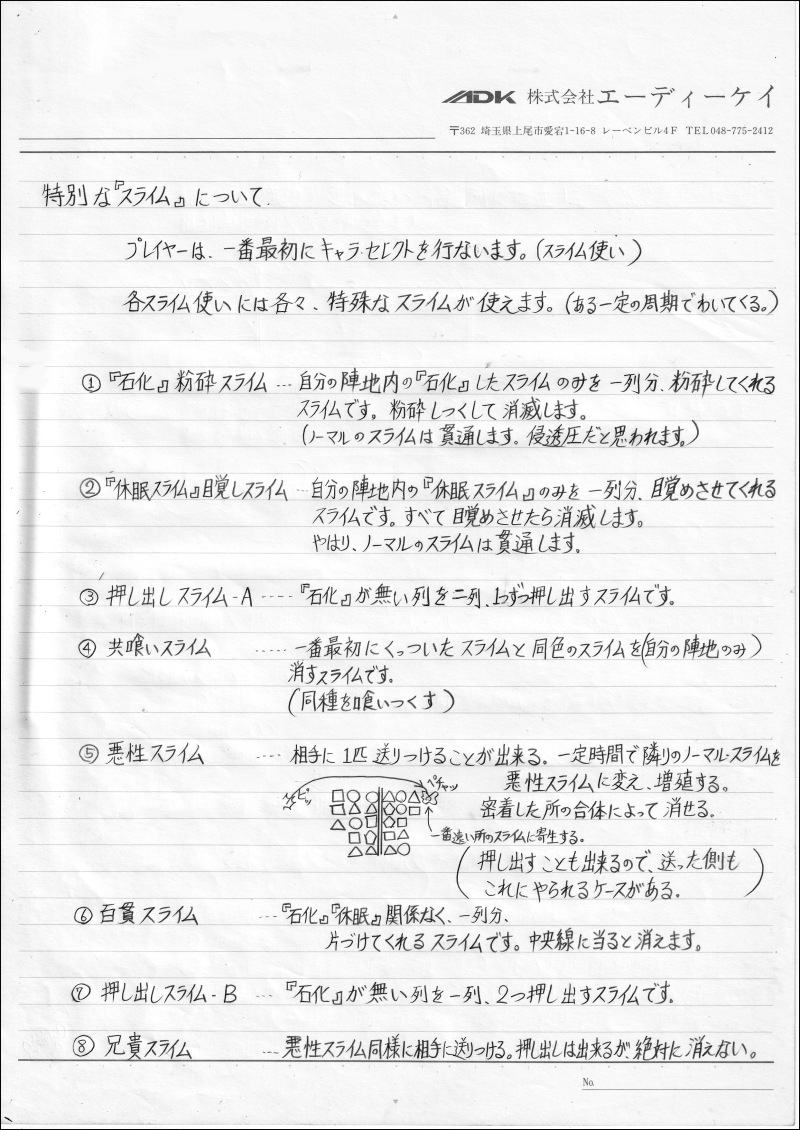 ADK 株式会社エーディーケイ
〒362 埼玉県上尾市愛宕1-16-8 レーベンビル4F TEL048-775-2412
特別な『スライム』について.
プレイヤーは、一番最初にキャラ・セレクトを行ないます。(スライム使い)
各スライム使いには各々、特殊なスライムが使えます。(ある一定の周期でわいてくる。)
① 『石化』粉砕スライム … 自分の陣地内の『石化』したスライムのみを一列分、粉砕してくれる
スライムです。粉砕しつくして消滅します。
(ノーマルのスライムは貫通します。侵透圧だと思われます。)
② 『休眠スライム』目覚しスライム … 自分の陣地内の『休眠スライム』のみを一列分、目覚めさせてくれる
スライムです。すべて目覚めさせたら消滅します。
やはり、ノーマルのスライムは貫通します。
③ 押し出しスライム-A ‥‥ 『石化』が無い列を二列、1つずつ押し出すスライムです。
④ 共喰いスライム ‥‥ 一番最初にくっついたスライムと同色のスライムを(自分の陣地のみ)
消すスライムです。
(同種を喰いつくす)
⑤ 悪性スライム ‥‥ 相手に1匹送りつけることが出来る。一定時間で隣りのノーマル・スライムを
悪性スライムに変え、増殖する。
密着した所の合体によって消せる.
ピッ
ペチャッ
一番遠い所のスライムに寄生する。
(押し出すことも出来るので、送った側も
これにやられるケースがある.)
⑥ 百貫スライム … 『石化』『休眠』関係なく、一列分、
片づけてくれるスライムです。中央線に当ると消えます。
⑦ 押し出しスライム-B … 『石化』が無い列を一列、2つ押し出すスライムです。
⑧ 兄貴スライム … 悪性スライム同様に相手に送りつける。押し出しは出来るが、絶対に消えない。
No.